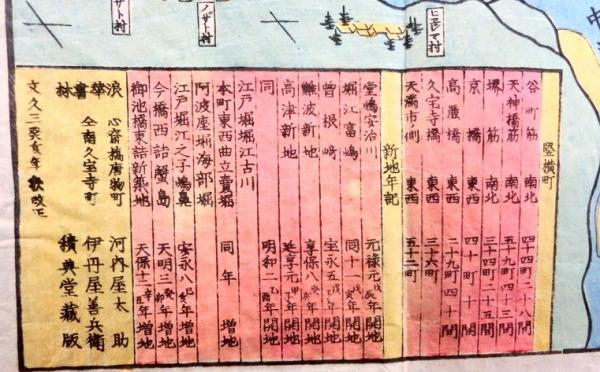 竪横町
谷町筋 南北 四十四町二十八間
天神橋筋 南北 五十九町四十三間
堺筋 南北 三十四町二十五間
京橋 東西 四十町十間
高麗橋 東西 二十九町四十間
久宝寺橋 東西 三十六町
天満市側 東西 五十二町
新地年記
堂嶋安治川 元禄元戊辰年開地
堀江富嶋 同十一戊寅年開地
曽根崎 宝永五戊子年開地
難波新地 享保八癸卯年開地
高津新地 延享元甲子年開地
同 明和二乙酉年開地
江戸堀堀江古川
本町東西曲立賣堀 同年増地
阿波座堀海部堀
江戸堀堀江之子嶋鼻 安永八己亥年増地
今橋西詰蟹島 天明三癸卯年増地
御池橋東詰新築地 天保十二辛丑年増地
浪華書林
心斎橋唐物町 河内屋太助
仝南久宝寺町 伊丹屋善兵衛
文久三癸亥年秋改正 積典堂蔵版
ノザト村